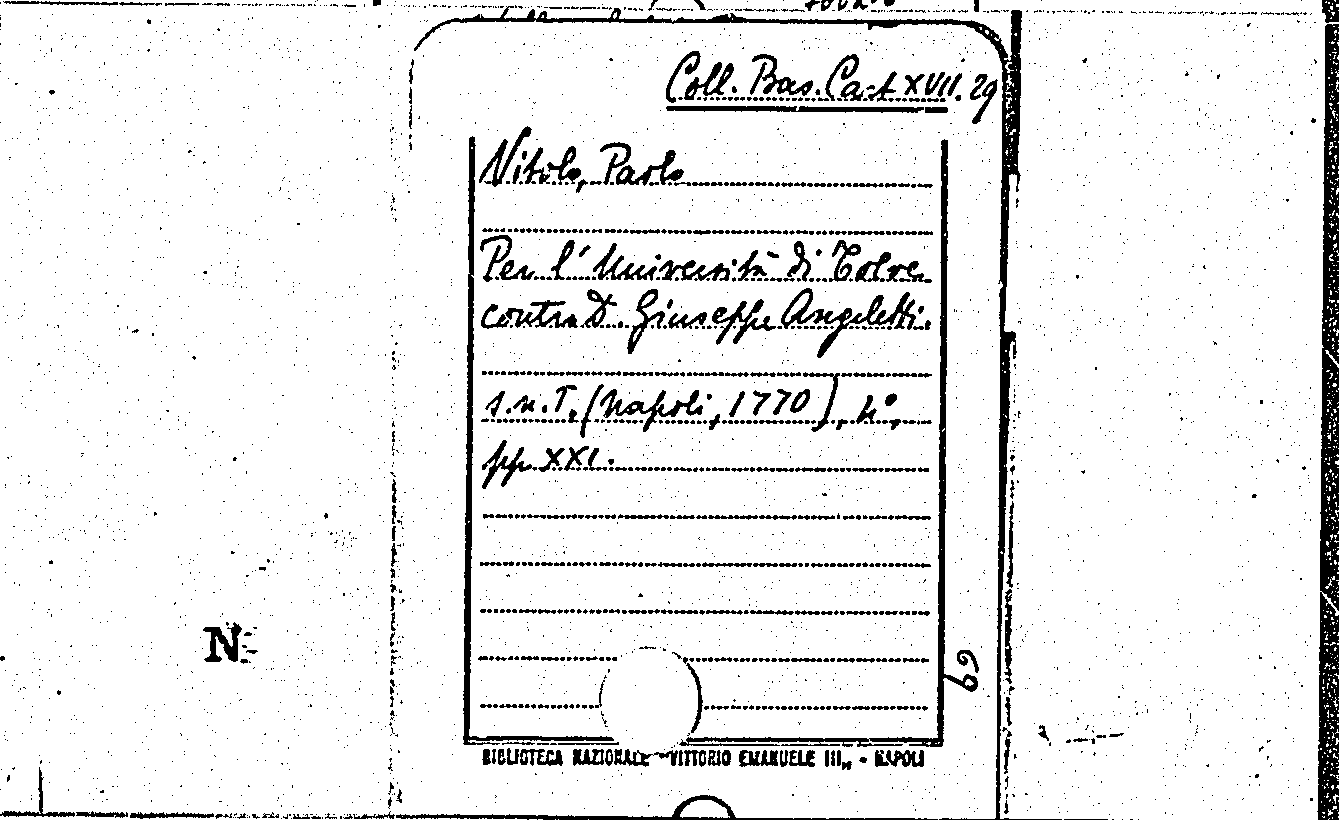 Coll. Bas. Ca-t XVII. 29
Vitolo, Paolo
Per l'Università di Tolve
contra D. Giuseppe Angeletti.
s.n.T. (Napoli, 1770), 4°,
pp. XXI.
N
69
BIBLIOTECA NAZIONALE "VITTORIO EMANUELE III„ - NAPOLI